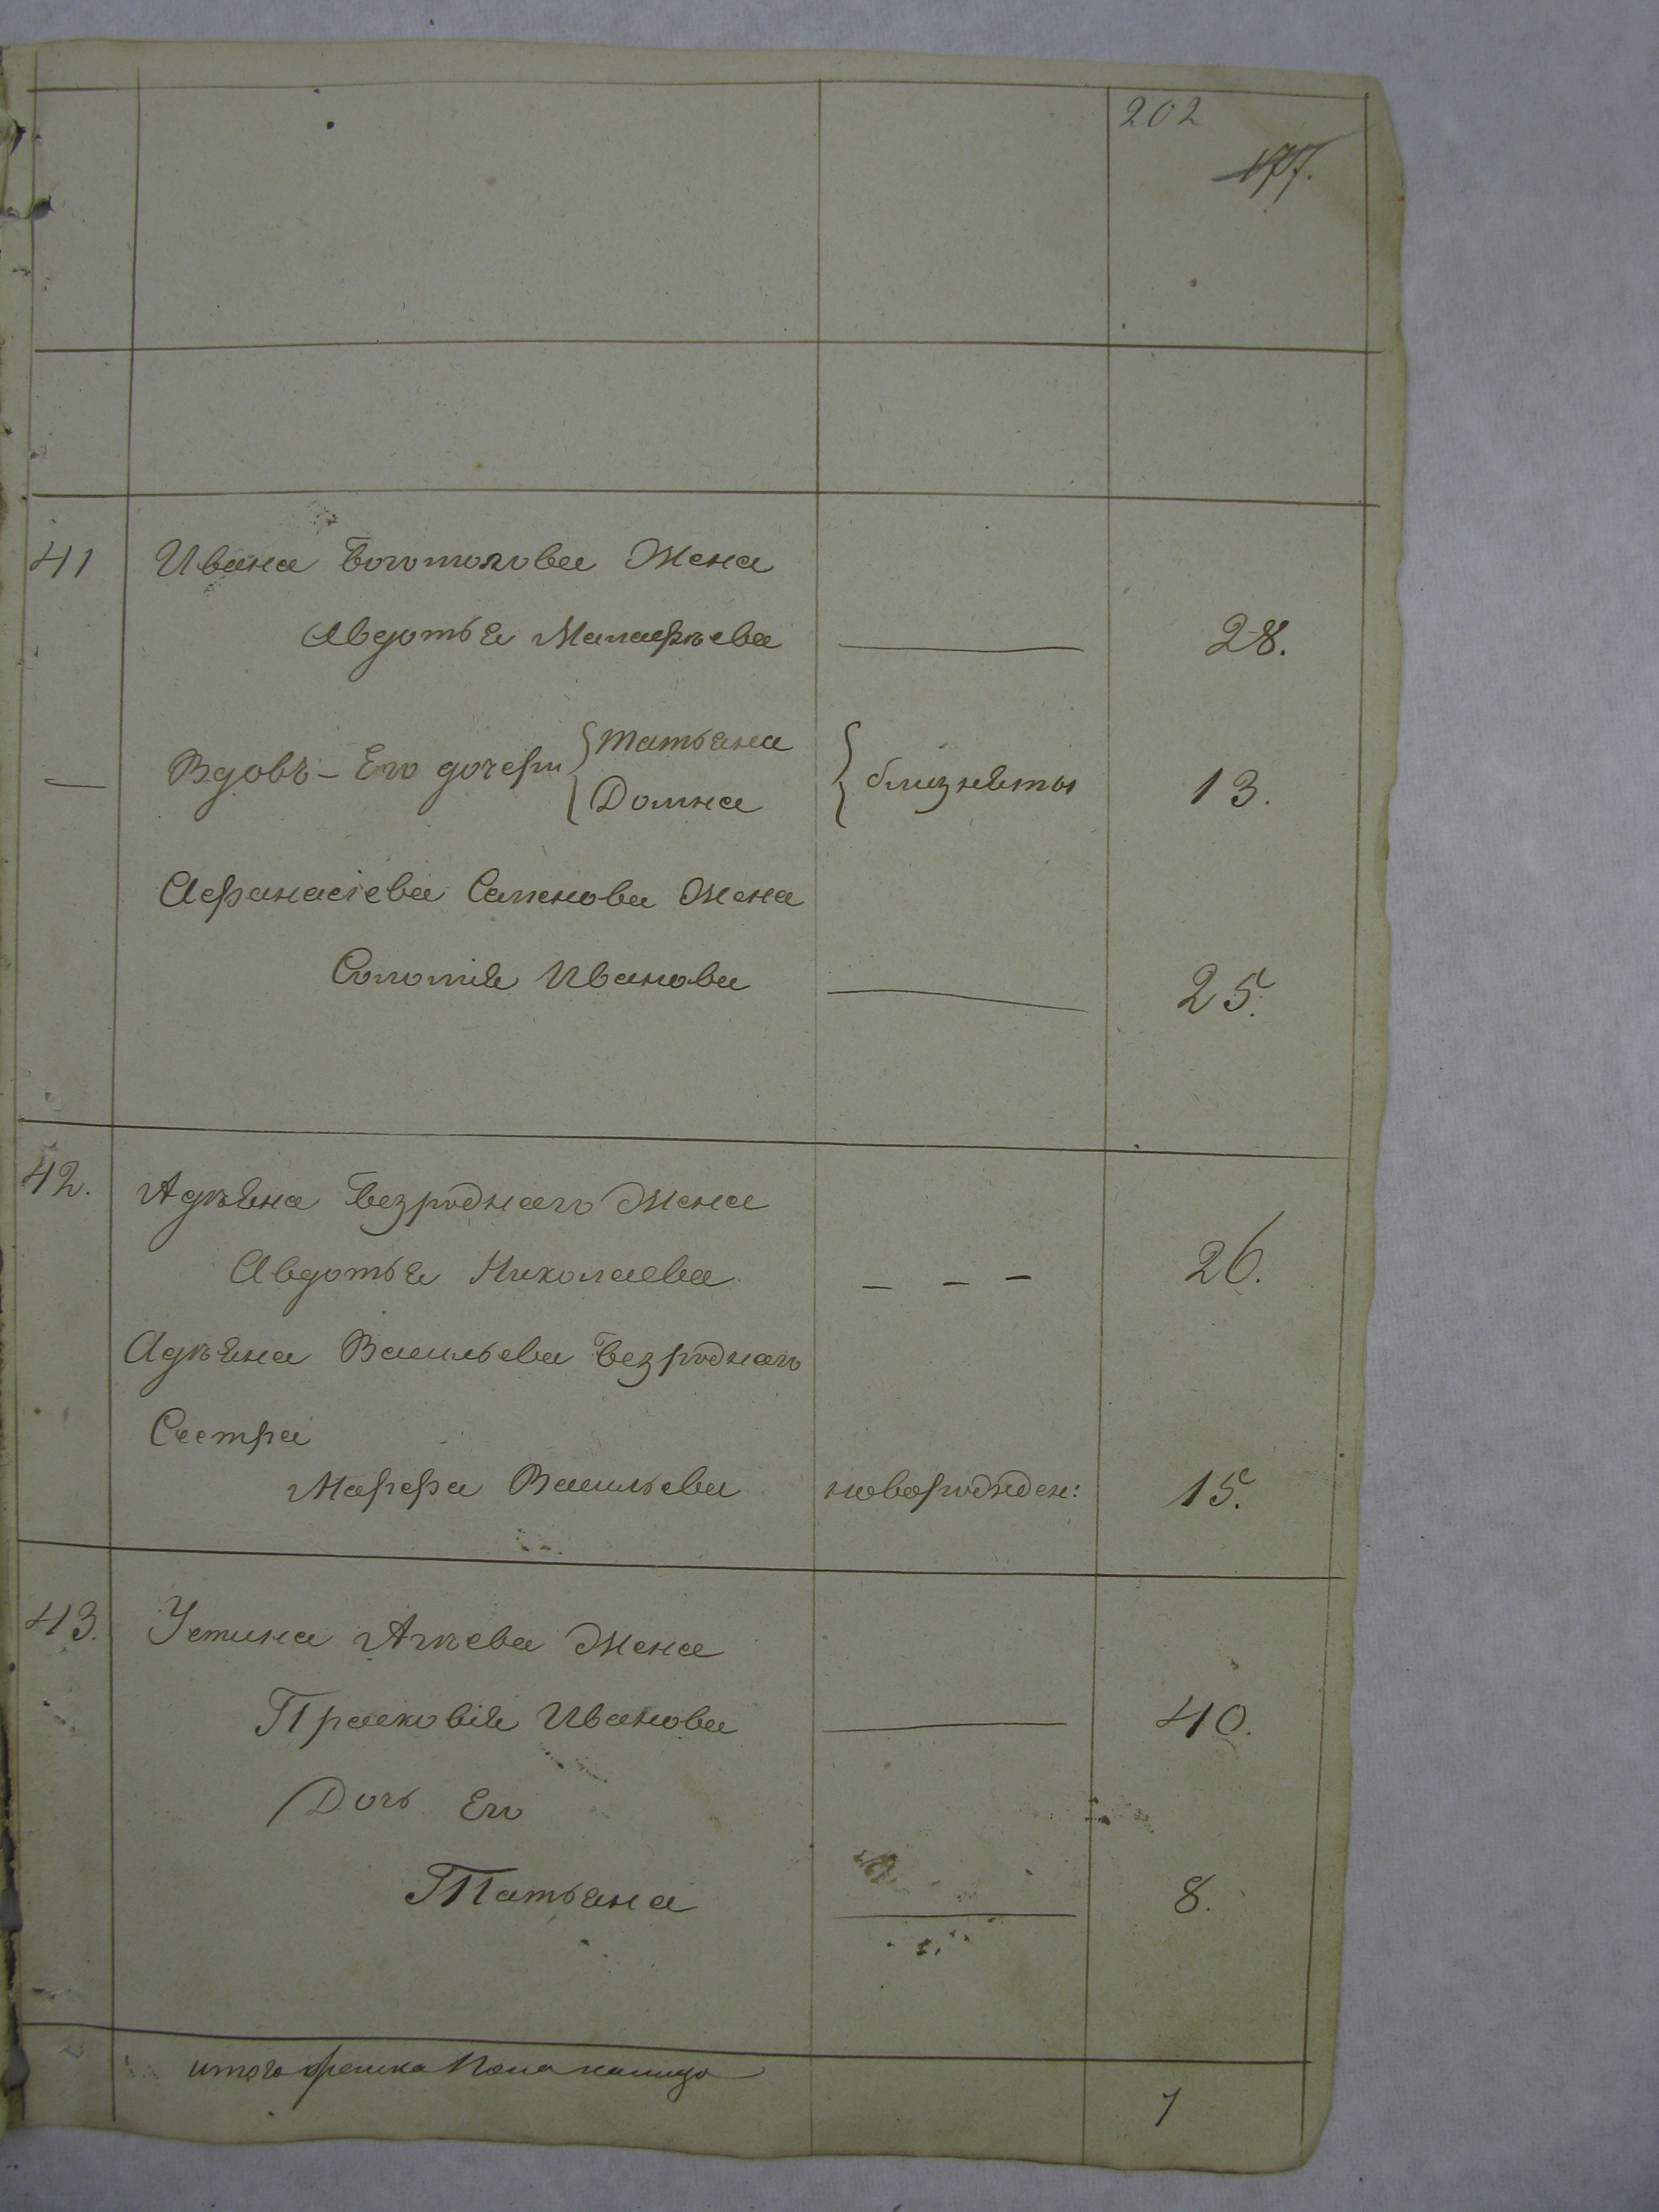 202
177.
41 Ивана Богомолова Жена
Авдотья Макарьева 28.
Вдовъ - Его дочери { Татьяна
Домна { близняты 13.
Афанасіева Семенова Жена
Соломія Иванова 25.
42. Адрьяна Безроднаго Жена
Авдотья Николаева - - - 26.
Адрьяна Васильева Безроднаго
Сестра
Марфа Васильева новорожден: 15.
43. Устина Агѣева Жена
Прасковія Иванова 40.
Дочь Его
Татьяна 8.
итого женска пола налицо 7